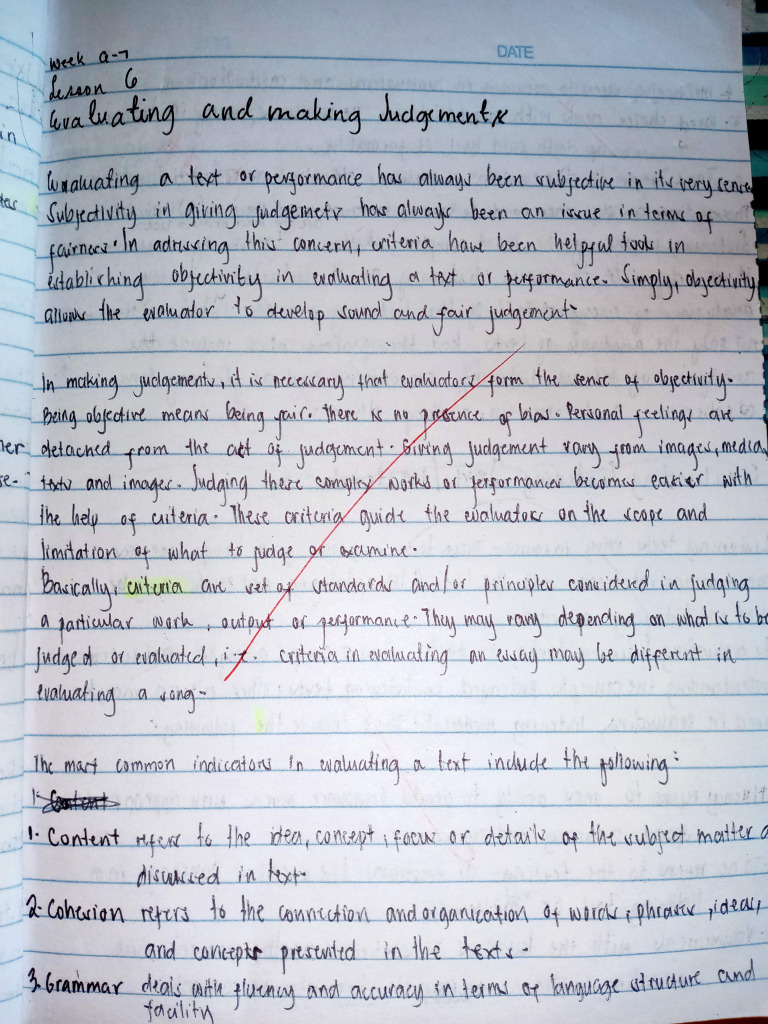 DATE
Week a-7
Lesson 6
Evaluating and making Judgements
in
Evaluating a text or performance has always been subjective in its very sense
Subjectivity in giving judgemets has always been an issue in terms of
fairness. In adrssing this concern, criteria have been helpful tools in
establishing objectivity in evaluating a text or performance. Simply, objectivity
allows the evaluator to develop sound and fair judgement.
In making judgements, it is necessary that evaluators form the sense of objectivity.
Being objective means being fair. There is no presence of bias. Personal feelings are
detached from the act of judgement. Giving judgement vary from images, media,
texts and images. Judging these complex works or performances becomes easier with
the help of criteria. These criteria guide the evaluators on the scope and
limitation of what to judge or examine.
Basically, criteria are set of standards and/or principles considered in judging
a particular work, output or performance. They may vary depending on what is to be
judged or evaluated, i.e. criteria in evaluating an essay may be different in
evaluating a song.
The most common indicators in evaluating a text include the following:
1. Content
1. Content refers to the idea, concept, focus or details of the subject matter
discussed in text.
2. Cohesion refers to the connection and organization of words, phrases, ideas,
and concepts presented in the texts.
3. Grammar deals with fluency and accuracy in terms of language structure and
facility